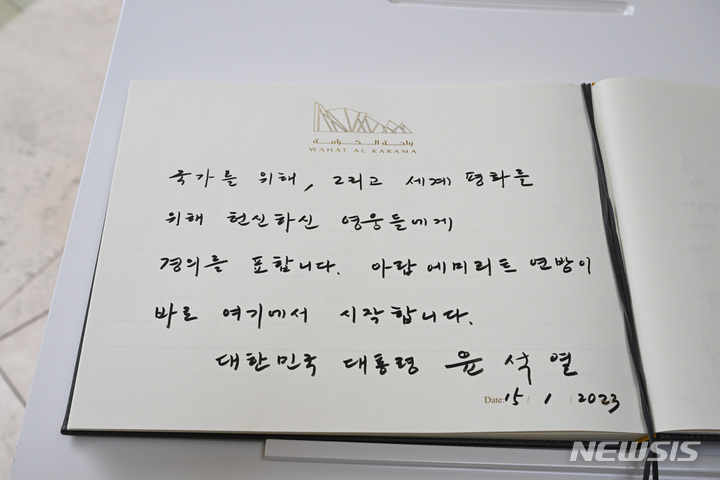 واحة الكرامة
WAHAT AL KARAMA
국가를 위해, 그리고 세계 평화를
위해 헌신하신 영웅들에게
경의를 표합니다. 아랍에미리트 연방이
바로 여기에서 시작합니다.
대한민국 대통령 윤석열
Date: 15 / 1 / 2023
NEWSIS